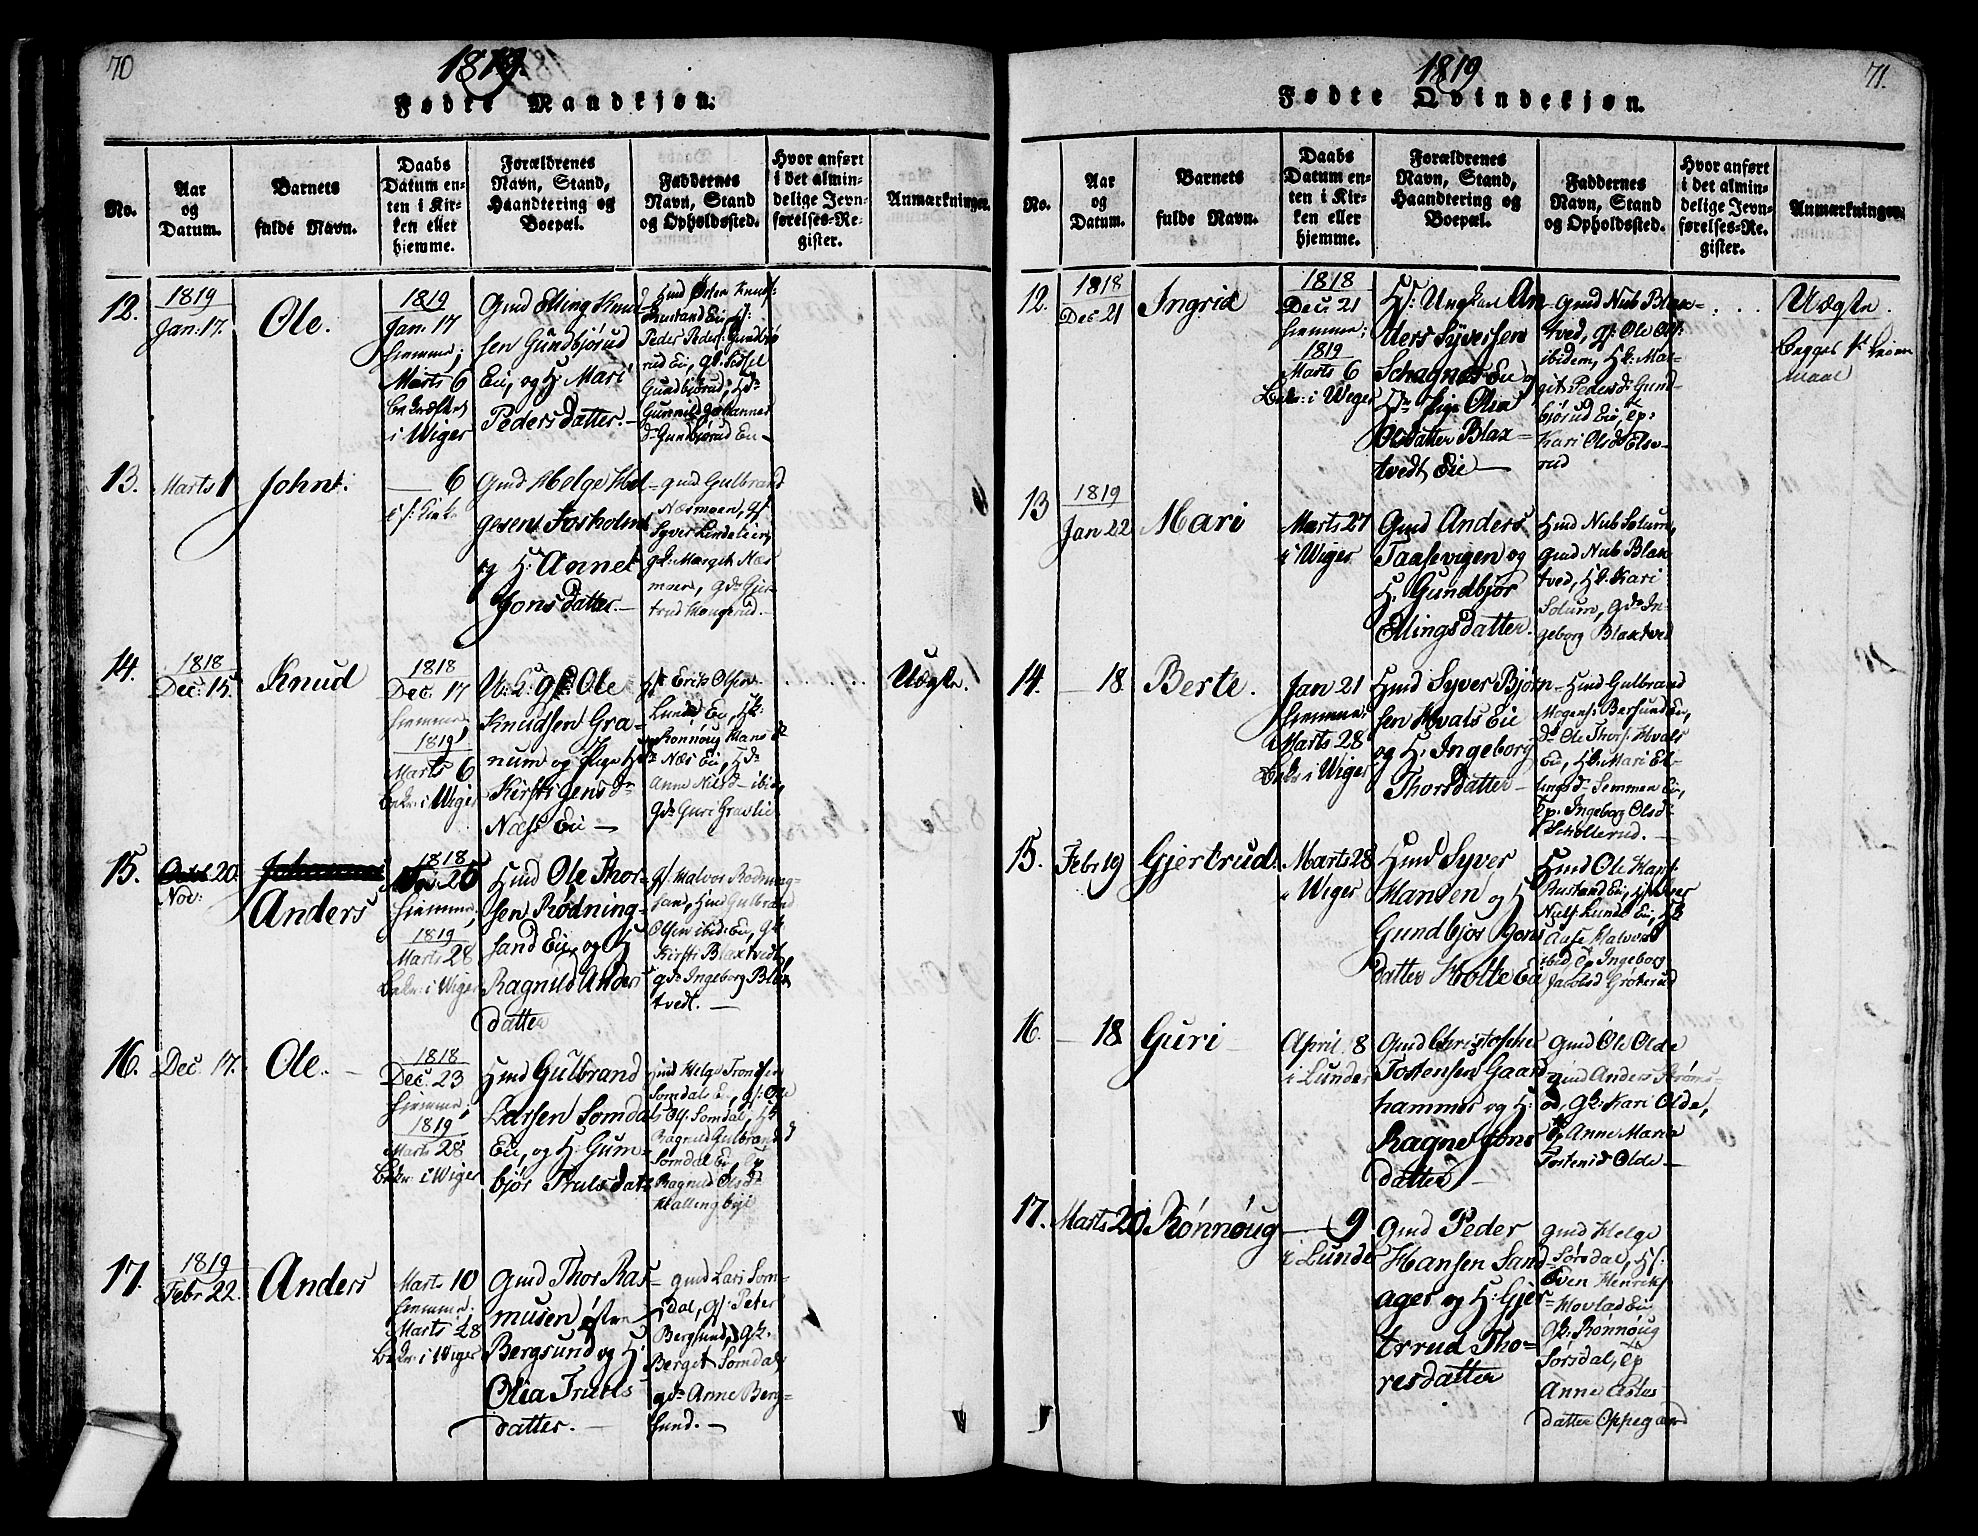 70
1819.
Fødte Mandkjøn.
No.
Aar og Datum.
Barnets fulde Navn.
Daabs Datum enten i Kirken eller hjemme.
Forældrenes Navn, Stand, Haandtering og Boepæl.
Faddernes Navn, Stand og Opholdssted.
Hvor anført i det almindelige Jevnførelses-Register.
Anmærkninger.
12.
1819
Jan: 17.
Ole.
1819
Jan: 17
hiemme;
Marts 6
bekræftet
i Wiger
Gmd Elling Knud
sen Gundbjørud
Eie, og H: Mari
Pedersdatter. –
Hmd Østen Knuds:
Rustand Eie,
Peder Peders: Gundbjø
rud Eie, gk: Sidsel
Gundbjørud,
Gunnild Johannes
d: Gundbjørud Eie –
13.
Marts 1
John.
— 6
i s: Kirke
Gmd Helge Hel=
gesen Fosholm
og H: Anne
Jonsdatter. –
gmd Gulbrand
Næsmoen, gs:
Syver Lindelien,
gk: Margit Næs
moen, gd: Gjer
trud Haugerud. –
14.
1818
Dec: 15.
Knud
1818
Dec: 17
hiemme,
1819
Marts 6
bekr: i Wiger
U: K: gs: Ole
Knudsen Gra=
num og Pige
Kirsti Jensd:
Næss Eie —
Erik Olsen
Lunde Eie, Hk:
Rønnoug Hans d:
Næs Eie,
Anne Nilsd: ibid,
gd: Guri Gravlie
Uægte.
15.
20.
Nov:
Anders
1818
26
hiemme,
1819
Marts 28
bekr: i Wiger
Hmd Ole Thor=
sen Rødning=
sand Eie, og H
Ragnild Anders
datter
gs: Halvor Rødning=
sand, Hmd Gulbrand
Olsen ibid: Eie, gk:
Kirsti Blaxtvedt,
gd: Ingeborg Blax
tvedt. —
16.
Dec. 17.
Ole. –
1818
Dec: 23
hiemme,
1819
Marts 28
bekr: i Wiger
Hmd Gulbrand
Larsen Somdal
Eie, og H. Gum=
bjør Trulsdatr
Hmd Helge Trondsen
Somdals Eie, gs: Ole
Somdal,
Ragnild Gulbrandsd
Somdal Eie,
Ragnild Olsd:
Hallingbye
17.
1819
Febr 22.
Anders
Marts 10
hiemme.
Marts 28
bekr: i Wiger
Gmd Thor Ras=
musen østre
Bergsund og H:
Olia Truls
datter. –
gmd Lars Som=
dal, gs: Peter
Bergsund, gk:
Berget Somdal,
gd: Anne Berg=
sund. –
71.
1819
Fødte Qvindekjøn.
No.
Aar og Datum.
Barnets fulde Navn.
Daabs Datum enten i Kirken eller hjemme.
Forældrenes Navn, Stand, Haandtering og Boepæl.
Faddernes Navn, Stand og Opholdssted.
Hvor anført i det almindelige Jevnførelses-Register.
Anmærkninger.
12.
1818
Dec 21
Ingrid
1818
Dec: 21
hiemme;
1819
Marts 6
bekr: i Wiger
Ungkarl An
ders Syversen
Schagnes Eie og
Pige Olia
Olsdatter Blax=
tvedt Eie —
Gmd Niub Blax=
tved, gs: Ole Ols:
ibidem, Hk: Mar=
git Pedersd: Gund=
bjørud Eie, Ep:
Kari Olsd: Else=
rud
Uægte.
begges 1ste Leier
maal
13
1819
Jan 22
Mari
Marts 27
i Wiger
Gmd Anders
Taasevigen og
H: Gundbjør
Ellingsdatter.
Hmd Niub Solum,
gmd Niub Blax
tved, Hk: Kari
Solum, gd: In=
geborg Blaxtved
14.
— 18
Berte.
Jan 21
hiemme:
Marts 28
bekr: i Wiger
Hmd Syver Bjørn=
sen Hvals Eie
og H: Ingeborg
Thorsdatter –
Hmd Gulbrand
Mogens: Bersund Eie,
Ole Thors: Hvals
Eie, Hk: Mari El=
lingsd: Semmen Eie,
Ep. Ingeborg Olsd:
Schollerud. –
15.
Febr 19
Gjertrud.
Marts 28
i Wiger
Hmd Syver
Hansen og H
Gundbjør Jons
datter Kolte Eie
Hmd Ole Hans:
Rustand Eie,
Nils Lunde Eie, Hk
Aase Halvorsd
ibid Ep Ingeborg
Jacobsd Grøterud
16.
— 18
Guri –
April 8
i Lunder
Gmd Christopher
Tostensen Gaard
hammer og H:
Ragne Jons
datter –
gmd Ole Olde
gmd Anders Strøms=
od, gk: Kari Olde,
Ep Anne Maria
Tostensd: Olde –
17.
Marts 20
Rønnoug
— 9
i Lunder
Gmd Peder
Hansen Sand=
ager og H: Gjer=
trud Tho=
resdatter
gmd Helge
Sørsdal,
Even Henriks:
Hovland Eie
gk: Rønnoug
Sørsdal, Ep
Anne Asles
datter Oppegaard